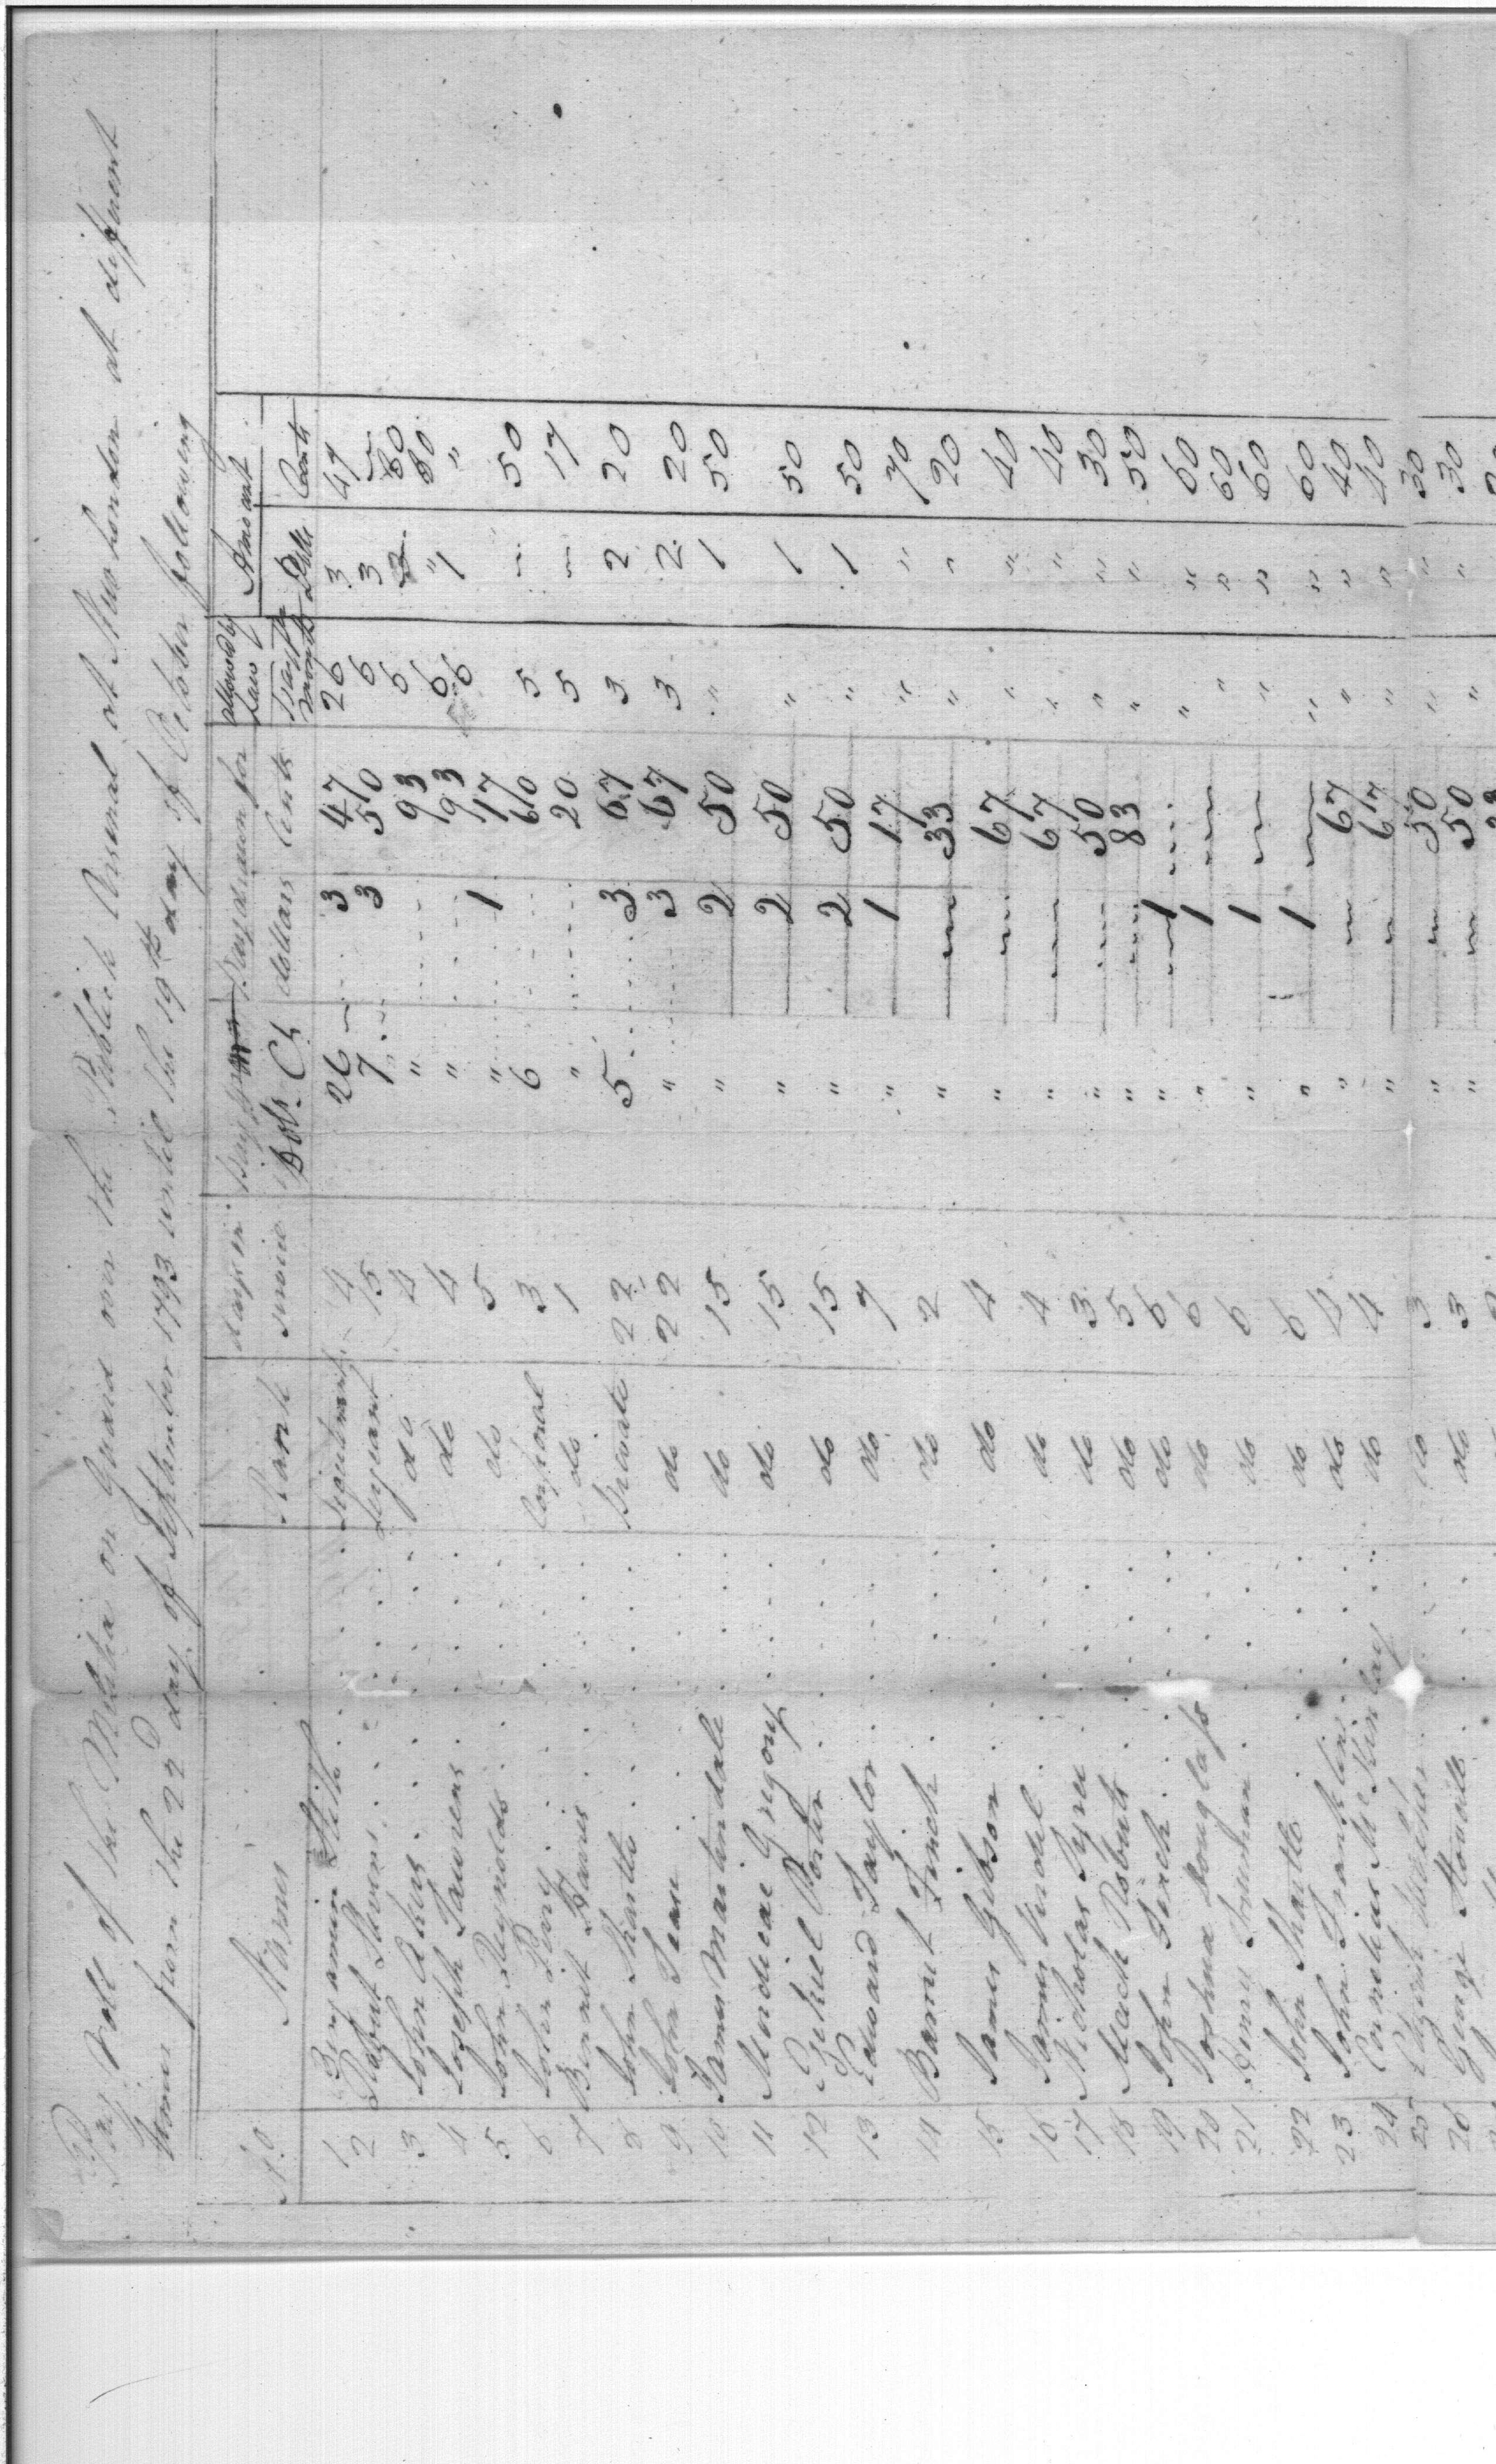 Pay Roll of the Militia on Guard over the Publick Arsenal at New London at different
times from the 22d day of September 1793 until the 19th day of October following
No Names Rank days in service Pay Dols Cts Pay drawn for dollars Cents allowed by Law Pay pr month Amount Dolls Cents
1 Benjamin Lieutenant 4 26 3 47 26 3 47
2 Robert Stevens Serjeant 15 7 3 50 6 3
3 John Akers do 4 " 93 6 80
4 Joseph Lawrens do 4 " 93 6 " 80
5 John Reynolds do 5 " 1 17 6 1 "
6 John Perry Corporal 3 6 60 5 50
7 Bennit Davis do 1 " 20 5 17
8 John Shartto Private 22 5 3 67 3 2 20
9 John do 22 " 3 67 3 2 20
10 James Martindale do 15 " 2 50 " 1 50
11 Mordicae Gregory do 15 " 2 50 " 1 50
12 Porter do 15 " 2 50 " 1 50
13 Edward Taylor do 7 " 1 17 " " 70
14 Barnet Finch do 2 " 33 " " 20
15 James Gibson do 4 " 67 " " 40
16 James do 4 " 67 " " 40
17 Nicholas do 3 " 50 " " 30
18 Mack Roberts do 5 " 83 " " 50
19 John do 6 " 1 " " 60
20 Joshua Douglass do 6 " 1 " 60
21 Henry do 6 " 1 " " 60
22 John Shartto do 6 " 1 " " 60
23 John Franklin do 4 " 67 " " 40
24 Cornelius McKinley do 4 " 67 " " 40
25 do 3 " 50 " " 30
26 George do 3 " 50 " " 30